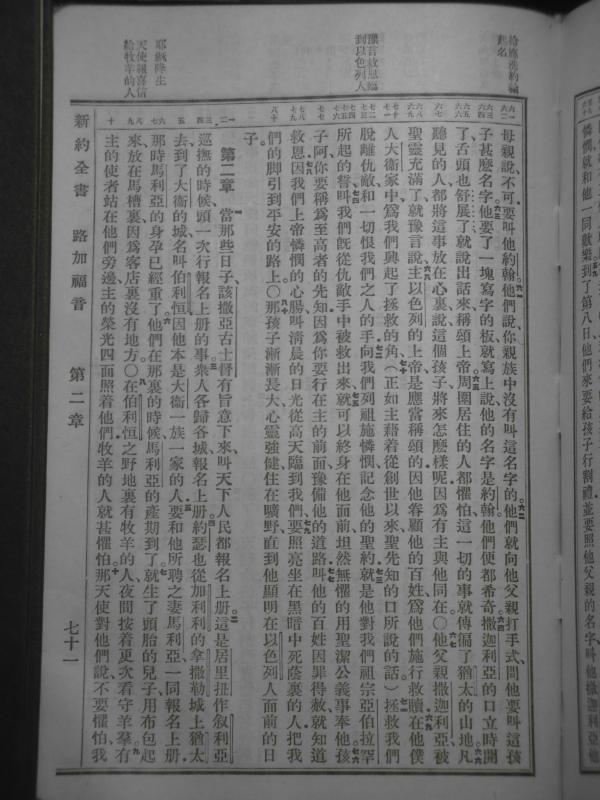 給施洗約翰起名
豫言救恩臨到以色列人
耶穌降生
天使報喜信給牧羊的人
憐憫就和他一同歡樂到了第八日他們來要給孩子行割禮並要照他父親的名字叫他撒迦利亞他
母親說不可要叫他約翰他們說你親族中沒有叫這名字的他們就向他父親打手式問他要叫這孩
子甚麼名字他要了一塊寫字的板就寫上說他的名字是約翰他們便都希奇撒迦利亞的口立時開
了舌頭也舒展了就說出話來稱頌上帝周圍居住的人都懼怕這一切的事就傳徧了猶太的山地凡
聽見的人都將這事放在心裏說這個孩子將來怎麼樣呢因爲有主與他同在〇他父親撒迦利亞被
聖靈充滿了就豫言說主以色列的上帝是應當稱頌的因他眷顧他的百姓爲他們施行救贖在他僕
人大衞家中爲我們興起了拯救的角(正如主藉着從創世以來聖先知的口所說的話)拯救我們
脫離仇敵和一切恨我們之人的手向我們列祖施憐憫記念他的聖約就是他對我們祖宗亞伯拉罕
所起的誓叫我們旣從仇敵手中被救出來就可以終身在他面前坦然無懼的用聖潔公義事奉他孩
子阿你要稱爲至高者的先知因爲你要行在主的前面豫備他的道路叫他的百姓因罪得赦就知道
救恩因我們上帝憐憫的心腸叫淸晨的日光從高天臨到我們要照亮坐在黑暗中死蔭裏的人把我
們的脚引到平安的路上〇那孩子漸漸長大心靈強健住在曠野直到他顯明在以色列人面前的日
子
第二章 當那些日子該撒亞古士督有旨意下來叫天下人民都報名上册這是居里扭作敘利亞
巡撫的時候頭一次行報名上册的事衆人各歸各城報名上册約瑟也從加利利的拿撒勒城上猶太
去到了大衞的城名叫伯利恒因他本是大衞一族一家的人要和他所聘之妻馬利亞一同報名上册
那時馬利亞的身孕已經重了他們在那裏的時候馬利亞的產期到了就生了頭胎的兒子用布包起
來放在馬槽裏因爲客店裏沒有地方〇在伯利恒之野地裏有牧羊的人夜間按着更次看守羊羣有
主的使者站在他們旁邊主的榮光四面照着他們牧羊的人就甚懼怕那天使對他們說不要懼怕我
新約全書 路加福音 第二章 七十一